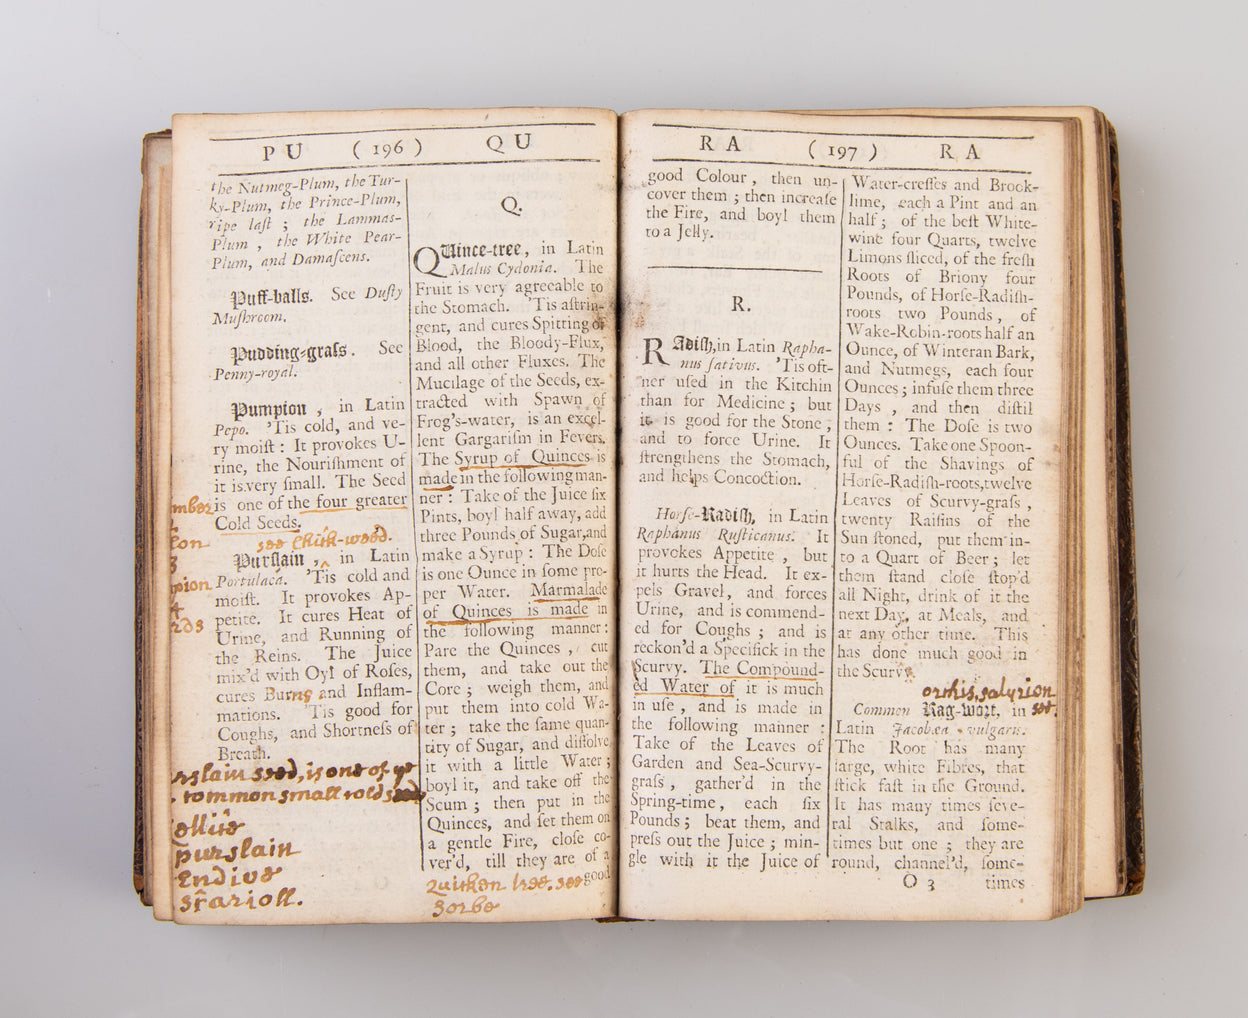 PU ( 196 ) QU
the Nutmeg-Plum, the Tur-
ky-Plum, the Prince-Plum,
ripe laſt ; the Lammas-
Plum , the White Pear-
Plum, and Damaſcens.
Puff-balls. See Duſty
Muſhroom.
Pudding-graſs. See
Penny-royal.
Pumpion , in Latin
Pepo. 'Tis cold, and ve-
ry moiſt : It provokes U-
rine, the Nouriſhment of
it is very ſmall. The Seed
is one of the four greater
Cold Seeds.
see Chick-weed.
Purſlain , in Latin
Portulaca. 'Tis cold and
moiſt. It provokes Ap-
petite. It cures Heat of
Urine, and Running of
the Reins. The Juice
mix'd with Oyl of Roſes,
cures Burns and Inflam-
mations. 'Tis good for
Coughs, and Shortneſs of
Breath.
rslain seed, is one of ye
common small cold
purslain
Endive
scarioll.
Q.
QUince-tree, in Latin
Malus Cydonia. The
Fruit is very agreeable to
the Stomach. 'Tis aſtrin-
gent, and cures Spitting of
Blood, the Bloody-Flux,
and all other Fluxes. The
Mucilage of the Seeds, ex-
tracted with Spawn of
Frog's-water, is an excel-
lent Gargariſm in Fevers.
The Syrup of Quinces is
made in the following man-
ner : Take of the Juice ſix
Pints, boyl half away, add
three Pounds of Sugar, and
make a Syrup : The Doſe
is one Ounce in ſome pro-
per Water. Marmalade
of Quinces is made in
the following manner:
Pare the Quinces , cut
them, and take out the
Core ; weigh them, and
put them into cold Wa-
ter ; take the ſame quan-
tity of Sugar, and diſſolve
it with a little Water ;
boyl it, and take off the
Scum ; then put in the
Quinces, and ſet them on
a gentle Fire, cloſe co-
ver'd, till they are of a
good
Quicken tree, see
Sorbe
RA ( 197 ) RA
good Colour , then un-
cover them ; then increaſe
the Fire, and boyl them
to a Jelly.
R.
RAdiſh, in Latin Rapha-
nus ſativus. 'Tis oft-
ner uſed in the Kitchin
than for Medicine ; but
it is good for the Stone ,
and to force Urine. It
ſtrengthens the Stomach,
and helps Concoction.
Horſe-Radiſh, in Latin
Raphanus Ruſticanus. It
provokes Appetite , but
it hurts the Head. It ex-
pels Gravel, and forces
Urine, and is commend-
ed for Coughs ; and is
reckon'd a Specifick in the
Scurvy. The Compound-
ed Water of it is much
in uſe , and is made in
the following manner :
Take of the Leaves of
Garden and Sea-Scurvy-
graſs , gather'd in the
Spring-time, each ſix
Pounds ; beat them, and
preſs out the Juice ; min-
gle with it the Juice of
Water-creſſes and Brook-
lime, each a Pint and an
half ; of the beſt White-
wine four Quarts, twelve
Limons ſliced, of the freſh
Roots of Briony four
Pounds, of Horſe-Radiſh-
roots two Pounds , of
Wake-Robin-roots half an
Ounce, of Winteran Bark,
and Nutmegs, each four
Ounces ; infuſe them three
Days , and then diſtil
them : The Doſe is two
Ounces. Take one Spoon-
ful of the Shavings of
Horſe-Radiſh-roots, twelve
Leaves of Scurvy-graſs ,
twenty Raiſins of the
Sun ſtoned, put them in-
to a Quart of Beer ; let
them ſtand cloſe ſtop'd
all Night, drink of it the
next Day, at Meals, and
at any other time. This
has done much good in
the Scurvy.
orchis, satyrion
see.
Common Rag-wort, in
Latin Jacobæa vulgaris.
The Root has many
large, white Fibres, that
ſtick faſt in the Ground.
It has many times ſeve-
ral Stalks, and ſome-
times but one ; they are
round, channel'd, ſome-
O 3 times